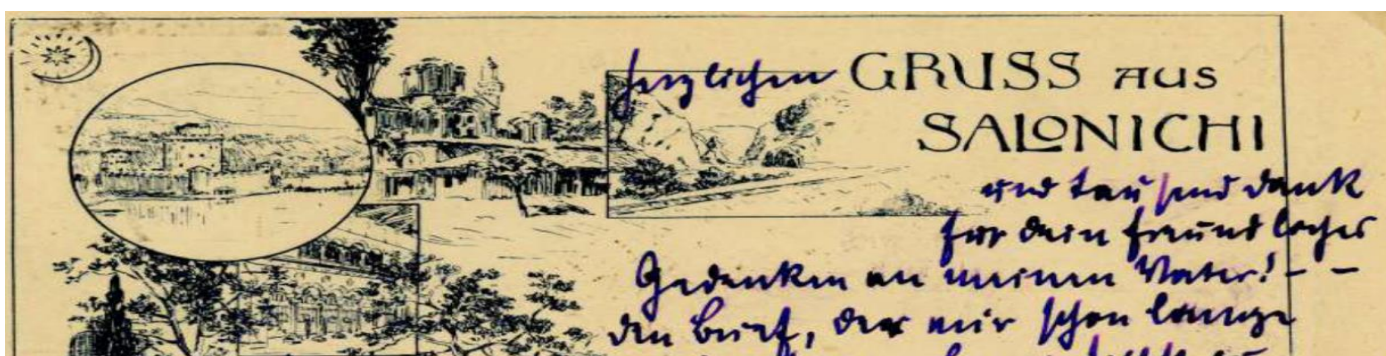 herzlichen GRUSS AUS
SALONICHI
und tausend Dank
für Dein freundliches
Gedenken an meinen Vater! - -
Den Brief, der mir schon lange